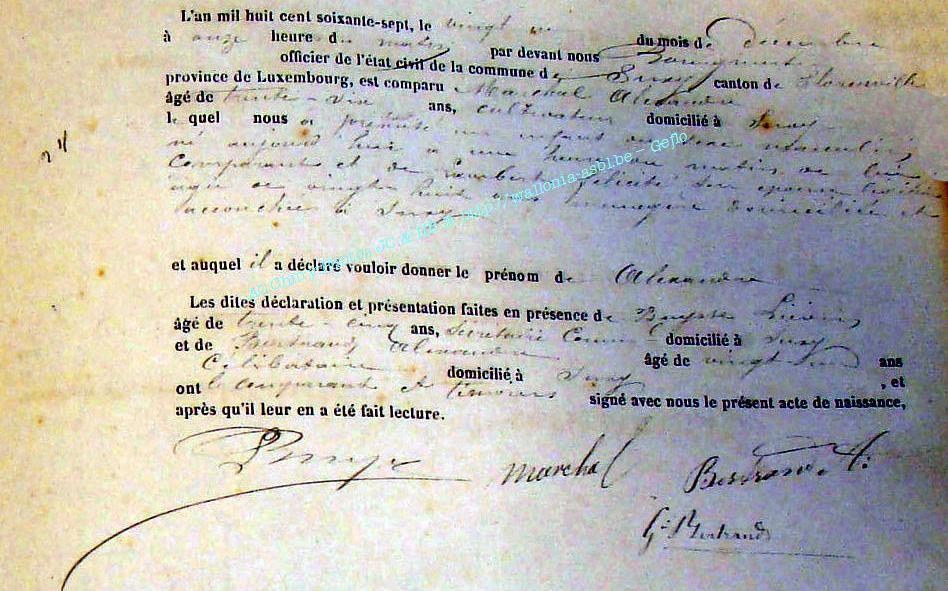 L'an mil huit cent soixante-sept, le vingt du mois de décembre
à onze heure du matin par devant nous
officier de l'état civil de la commune de Suxy canton de Florenville
province de Luxembourg, est comparu Marchal Alexandre
âgé de trente-six ans, cultivateur domicilié à Suxy
le quel nous a présenté un enfant du sexe masculin
né aujourd'hui à une heure du matin de lui
comparant et de Lambert Félicité son épouse
âgée de vingt huit ans ménagère domiciliée et
accouchée à Suxy
et auquel il a déclaré vouloir donner le prénom de Alexandre
Les dites déclaration et présentation faites en présence de
âgé de trente-cinq ans, Secrétaire Comm. domicilié à Suxy
et de Bertrand Alexandre âgé de vingt ans
Célibataire domicilié à Suxy , et
ont le comparant et témoins signé avec nous le présent acte de naissance,
après qu'il leur en a été fait lecture.
Marchal Bertrand A.
G. Bertrand
http://wallonia-asbl.be - Geflo